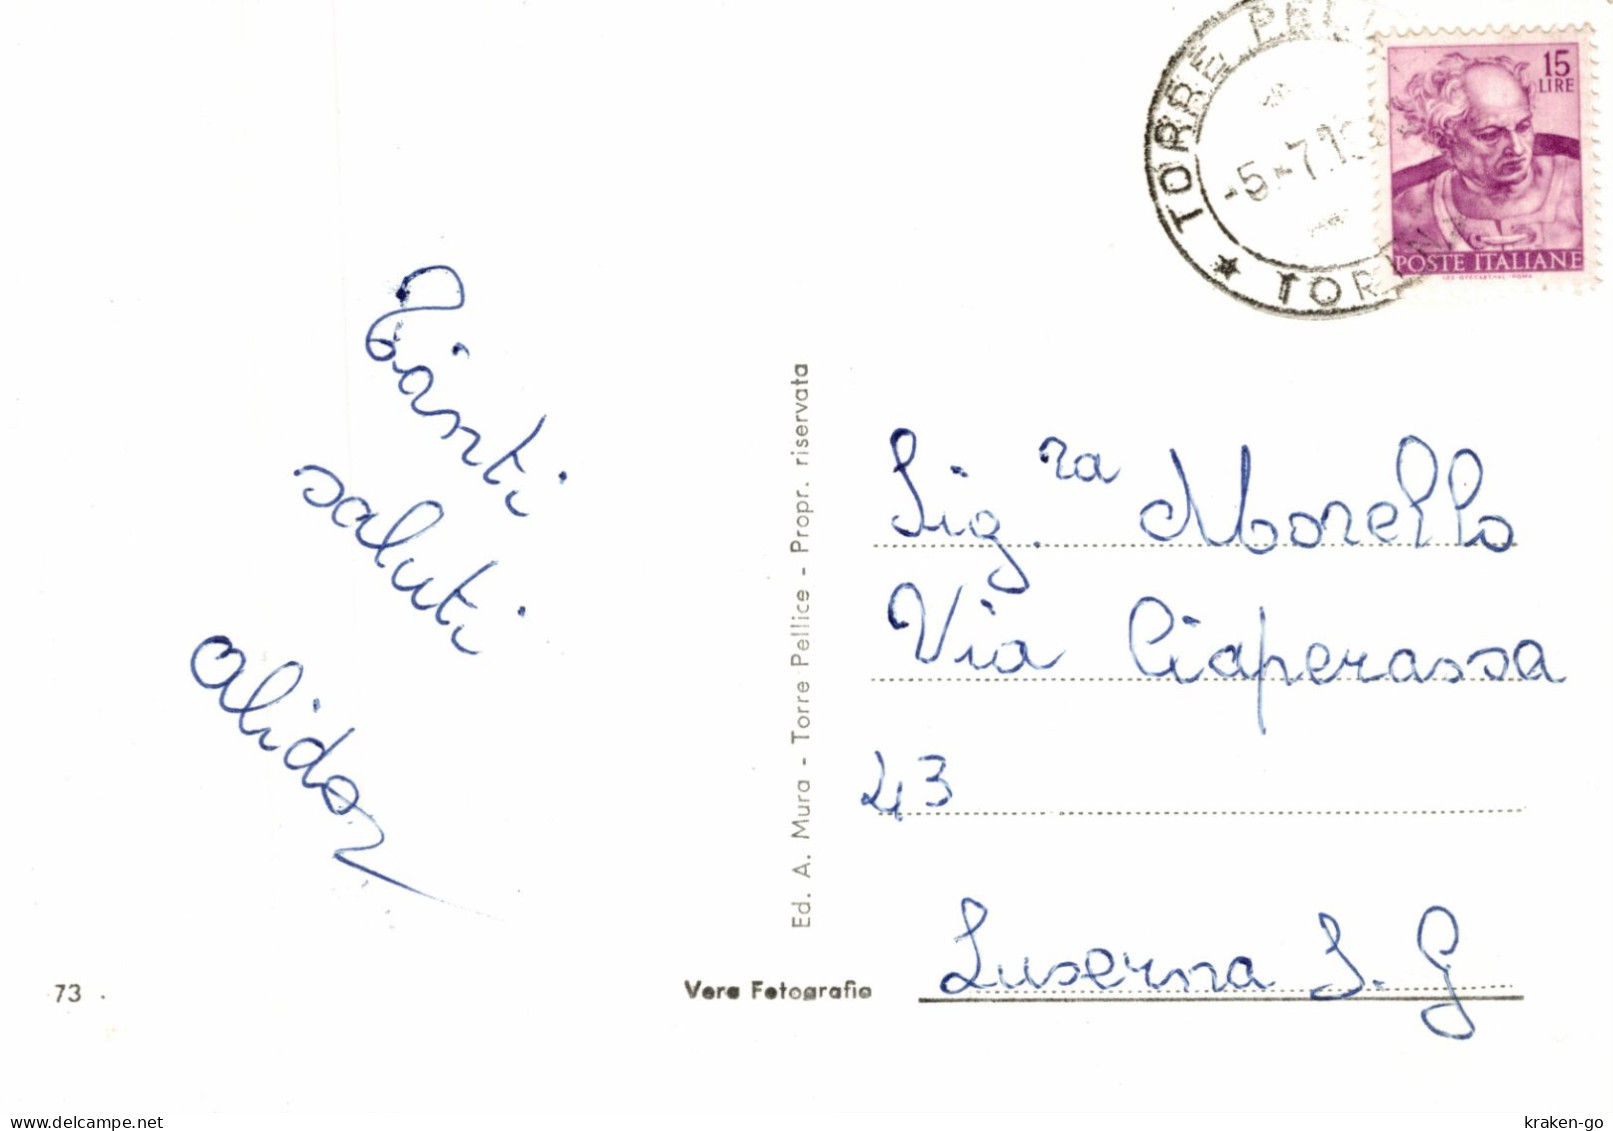 TORRE PELL
-5.-7.19
TORINO
15
LIRE
POSTE ITALIANE
Tanti
saluti
Ed. A. Mura - Torre Pellice - Propr. riservata
Sig.ra Morello
Via Ciaperassa
43
Luserna S. G
73
Vera Fotografia
kraken-go
delcampe.net